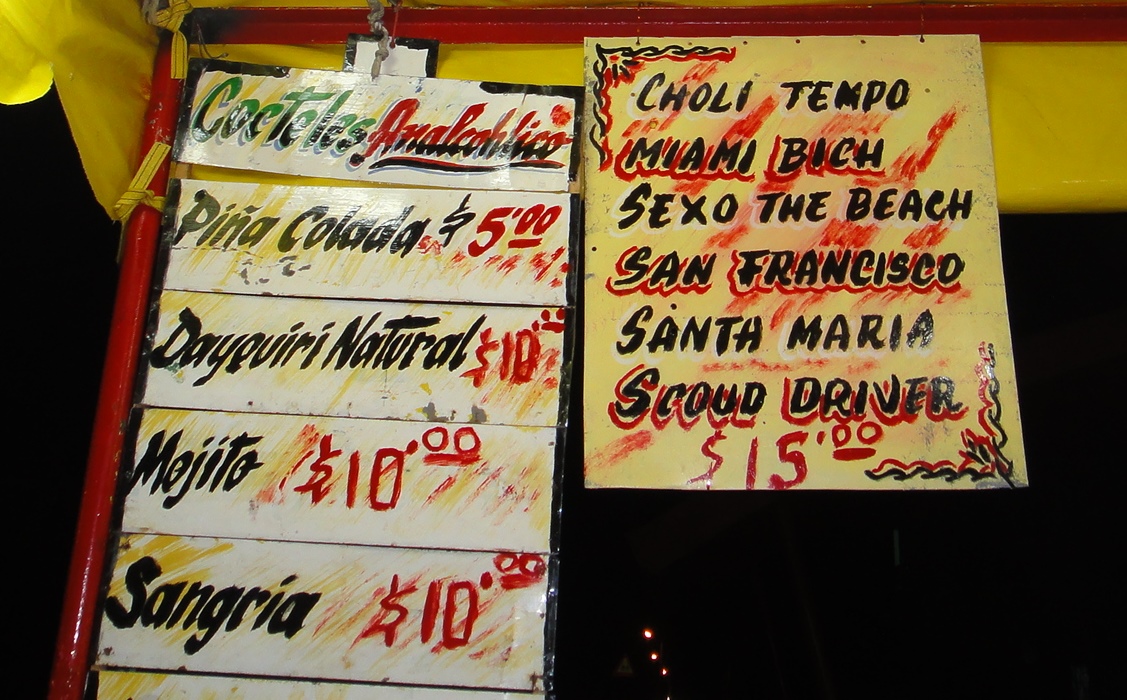 Cocteles Analcohlico
Piña Colada $5'00
Dayquiri Natural $10'00
Mojito $10'00
Sangría $10'00
CHOLI TEMPO
MIAMI BICH
SEXO THE BEACH
SAN FRANCISCO
SANTA MARIA
SCOUD DRIVER
$15'00